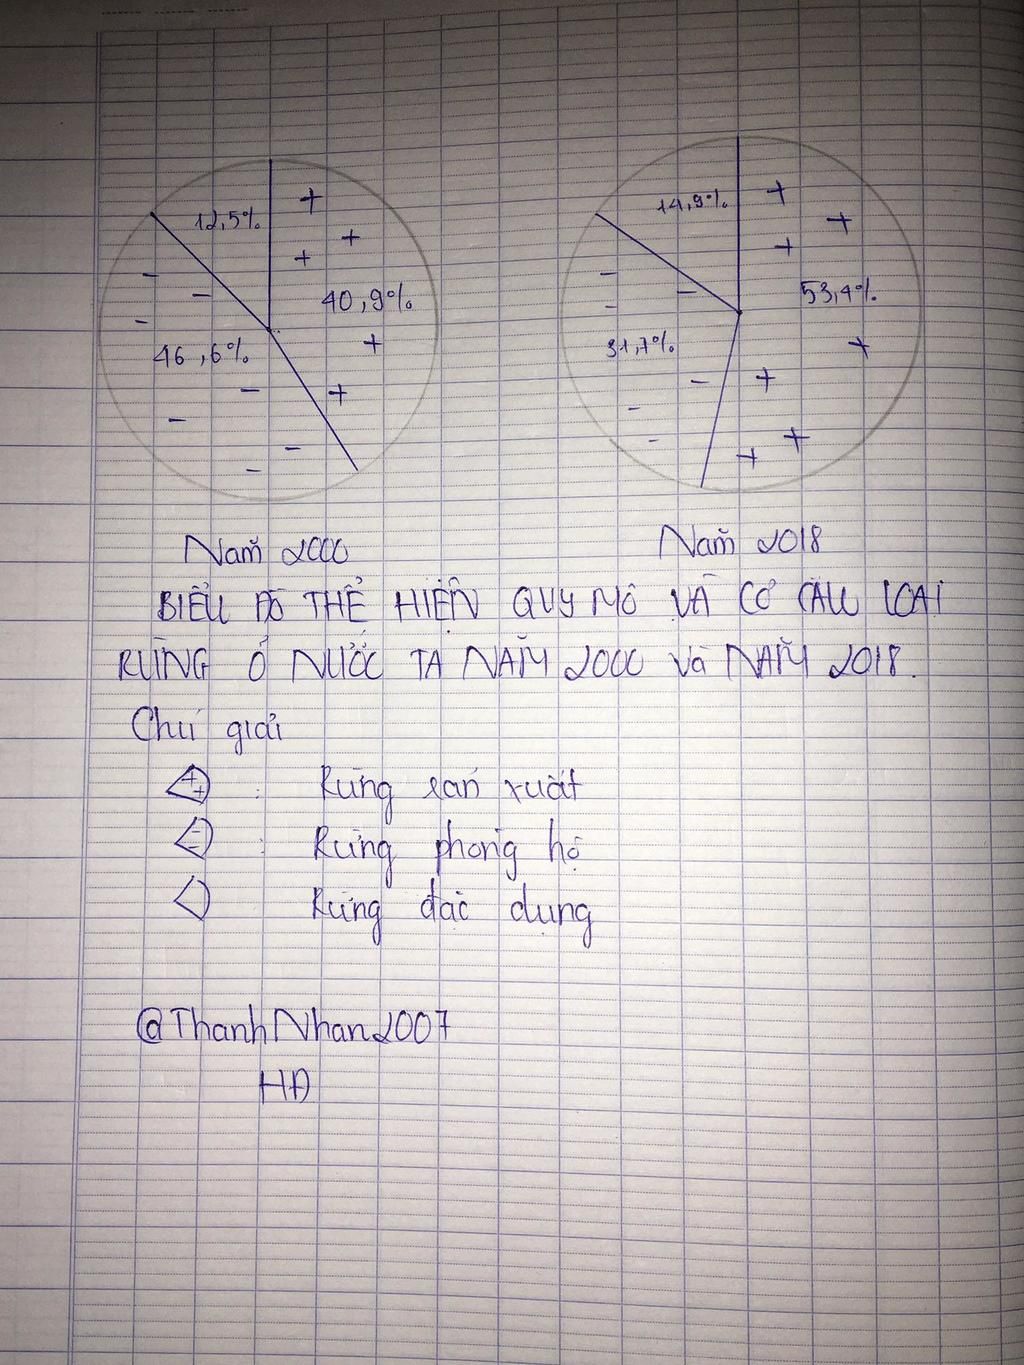 12,5%
40,9%
46,6%
14,9%
53,4%
31,7%
Năm 2000
Năm 2018
BIỂU ĐỒ THỂ HIỆN QUY MÔ VÀ CƠ CẤU LOẠI
RỪNG Ở NƯỚC TA NĂM 2000 Và NĂM 2018.
Chú giải
: Rừng sản xuất
: Rừng phòng hộ
Rừng đặc dụng
@ThanhNhan2007
HĐ